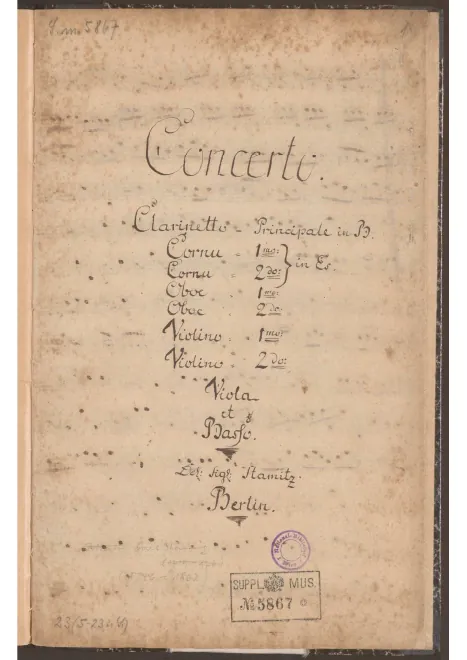 5867
Concerto.
Clarinetto - Principale in B.
Cornu - 1mo:
Cornu - 2do: } in Es
Oboe 1mo:
Oboe 2do.
Violino. 1mo:
Violino. 2do:
Viola
et
Basso.
Del: Sigr: Stamitz.
Berlin.
SUPPL. MUS.
No 5867